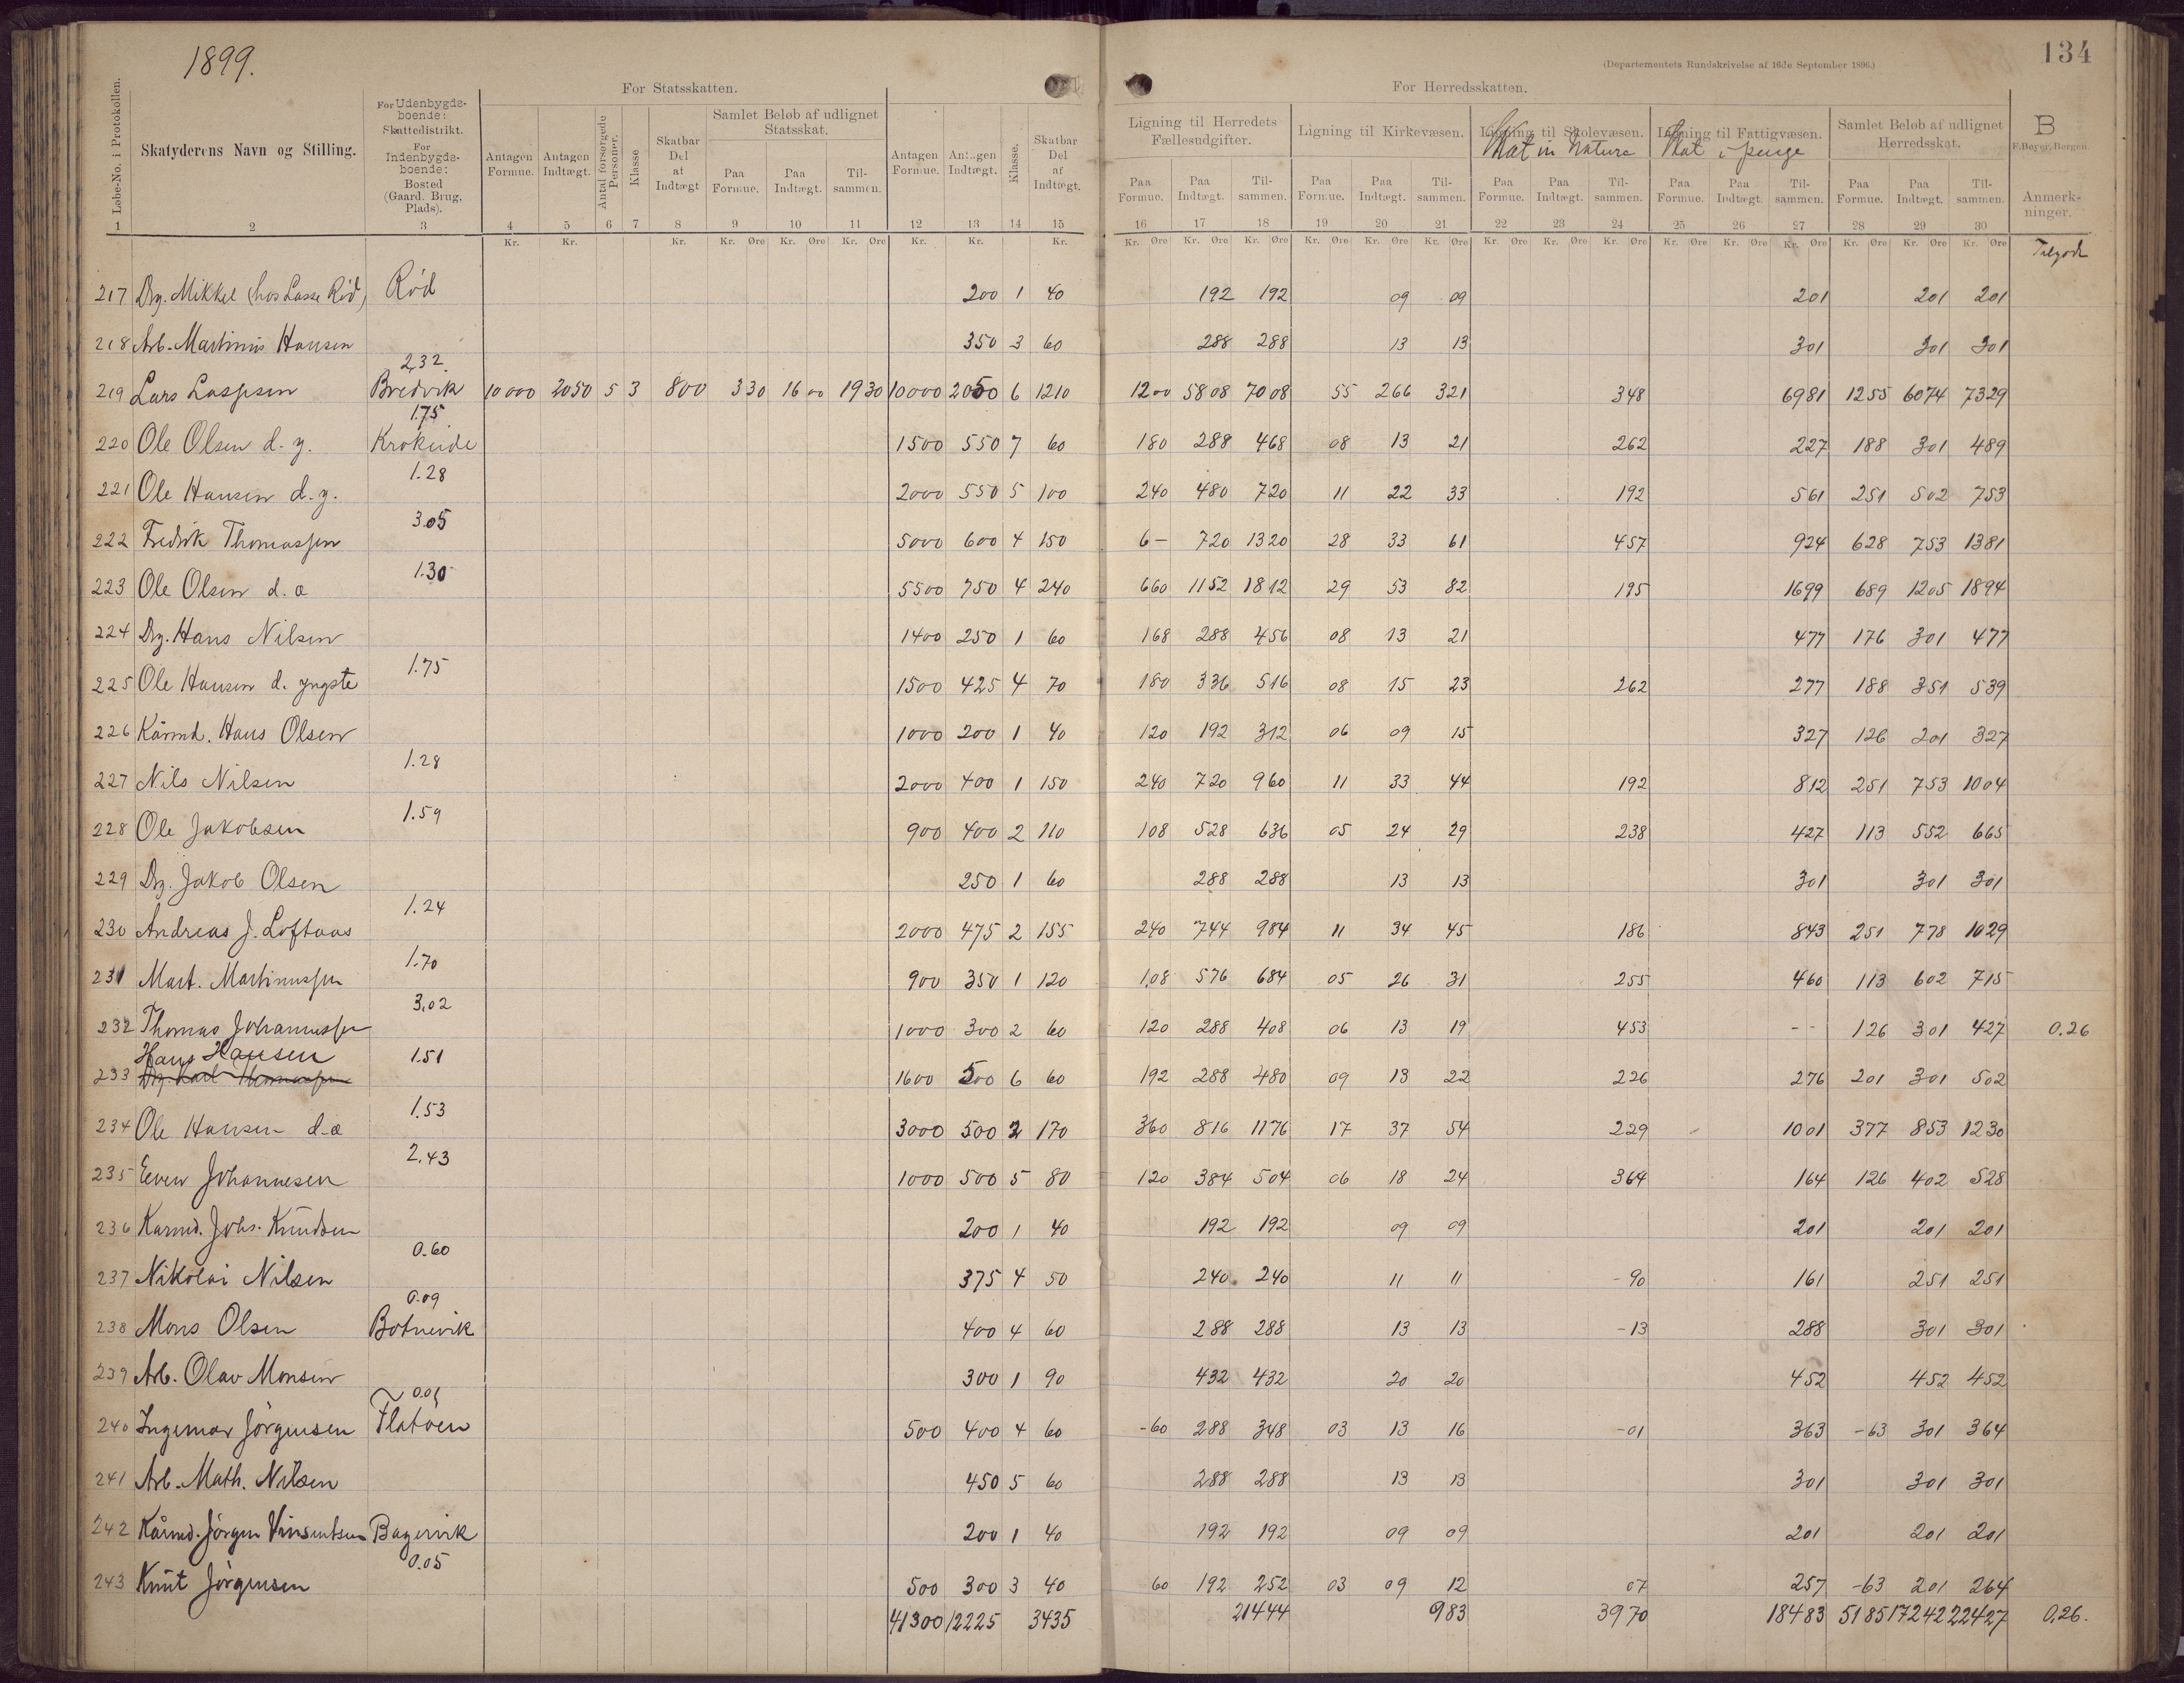 1899.
134
(Departementets Rundskrivelse af 16de September 1896.)
For Statsskatten.
For Herredsskatten.
Løbe-No. i Protokollen.
Skatyderens Navn og Stilling.
For Udenbygdsboende: Skattedistrikt. For Indenbygdsboende: Bosted (Gaard. Brug, Plads).
Antagen Formue.
Antagen Indtægt.
Antal forsørgede Personer.
Klasse
Skatbar Del af Indtægt
Samlet Beløb af udlignet Statsskat.
Paa Formue.
Paa Indtægt.
Tilsammen.
Antagen Formue.
Antagen Indtægt.
Klasse.
Skatbar Del af Indtægt.
Ligning til Herredets Fællesudgifter.
Paa Formue.
Paa Indtægt.
Tilsammen.
Ligning til Kirkevæsen.
Paa Formue.
Paa Indtægt.
Tilsammen.
Ligning til Skolevæsen.
Skat in Natura
Paa Formue.
Paa Indtægt.
Tilsammen.
Ligning til Fattigvæsen.
Skat i penge
Paa Formue.
Paa Indtægt.
Tilsammen.
Samlet Beløb af udlignet Herredsskat.
Paa Formue.
Paa Indtægt.
Tilsammen.
B
F. Beyer, Bergen.
Anmerkninger.
1 2 3 4 5 6 7 8 9 10 11 12 13 14 15 16 17 18 19 20 21 22 23 24 25 26 27 28 29 30
Kr. Kr. Kr. Kr. Øre Kr. Øre Kr. Øre Kr. Kr. Kr. Kr. Øre Kr. Øre Kr. Øre Kr. Øre Kr. Øre Kr. Øre Kr. Øre Kr. Øre Kr. Øre Kr. Øre Kr. Øre Kr. Øre Kr. Øre Kr. Øre Kr. Øre
Tilgode
217 Drg. Mikkel (hos Lasse Rød) Rød 200 1 40 192 192 09 09 201 201 201
218 Arb. Martinus Hansen 350 3 60 288 288 13 13 301 301 301
2,32.
219 Lars Lassesen Bredvik 10000 2050 5 3 800 330 16 00 1930 10000 2050 6 1210 1200 5808 7008 55 266 321 348 6981 1255 6074 7329
1.75
220 Ole Olsen d. y. Krokeide 1500 550 7 60 180 288 468 08 13 21 262 227 188 301 489
1.28
221 Ole Hansen d. y. 2000 550 5 100 240 480 720 11 22 33 192 561 251 502 753
3.05
222 Fredrik Thomassen 5000 600 4 150 6- 720 1320 28 33 61 457 924 628 753 1381
1.30
223 Ole Olsen d. æ 5500 750 4 240 660 1152 1812 29 53 82 195 1699 689 1205 1894
224 Drg. Hans Nilsen 1400 250 1 60 168 288 456 08 13 21 477 176 301 477
1.75
225 Ole Hansen d. yngste 1500 425 4 70 180 336 516 08 15 23 262 277 188 351 539
226 Kårmd. Hans Olsen 1000 200 1 40 120 192 312 06 09 15 327 126 201 327
1.28
227 Nils Nilsen 2000 400 1 150 240 720 960 11 33 44 192 812 251 753 1004
1.59
228 Ole Jakobsen 900 400 2 110 108 528 636 05 24 29 238 427 113 552 665
229 Drg. Jakob Olsen 250 1 60 288 288 13 13 301 301 301
1.24
230 Andreas J. Loftaas 2000 475 2 155 240 744 984 11 34 45 186 843 251 778 1029
1.70
231 Mart. Martinussen 900 350 1 120 1,08 576 684 05 26 31 255 460 113 602 715
3,02
232 Thomas Johannessen 1000 300 2 60 120 288 408 06 13 19 453 -- 126 301 427 0.26
Hans Hansen 1.51
233 Drg. Karl Thomassen 1600 500 6 60 192 288 480 09 13 22 226 276 201 301 502
1.53
234 Ole Hansen d.æ 3000 500 2 170 360 816 1176 17 37 54 229 1001 377 853 1230
2.43
235 Even Johannesen 1000 500 5 80 120 384 504 06 18 24 364 164 126 402 528
236 Karmd. Johs. Knudsen 200 1 40 192 192 09 09 201 201 201
0.60
237 Nikolai Nilsen 375 4 50 240 240 11 11 -90 161 251 251
0.09
238 Mons Olsen Botnevik 400 4 60 288 288 13 13 -13 288 301 301
239 Arb. Olav Monsen 300 1 90 432 432 20 20 452 452 452
0.01
240 Ingemar Jørgensen Flatøen 500 400 4 60 -60 288 348 03 13 16 -01 363 -63 301 364
241 Arb. Math. Nilsen 450 5 60 288 288 13 13 301 301 301
242 Kårmd. Jørgen Vinsentsen Bagervik 200 1 40 192 192 09 09 201 201 201
0.05
243 Knut Jørgensen 500 300 3 40 60 192 252 03 09 12 07 257 -63 201 264
41300 12225 3435 21444 983 3970 18483 5185 17242 22427 0,26.